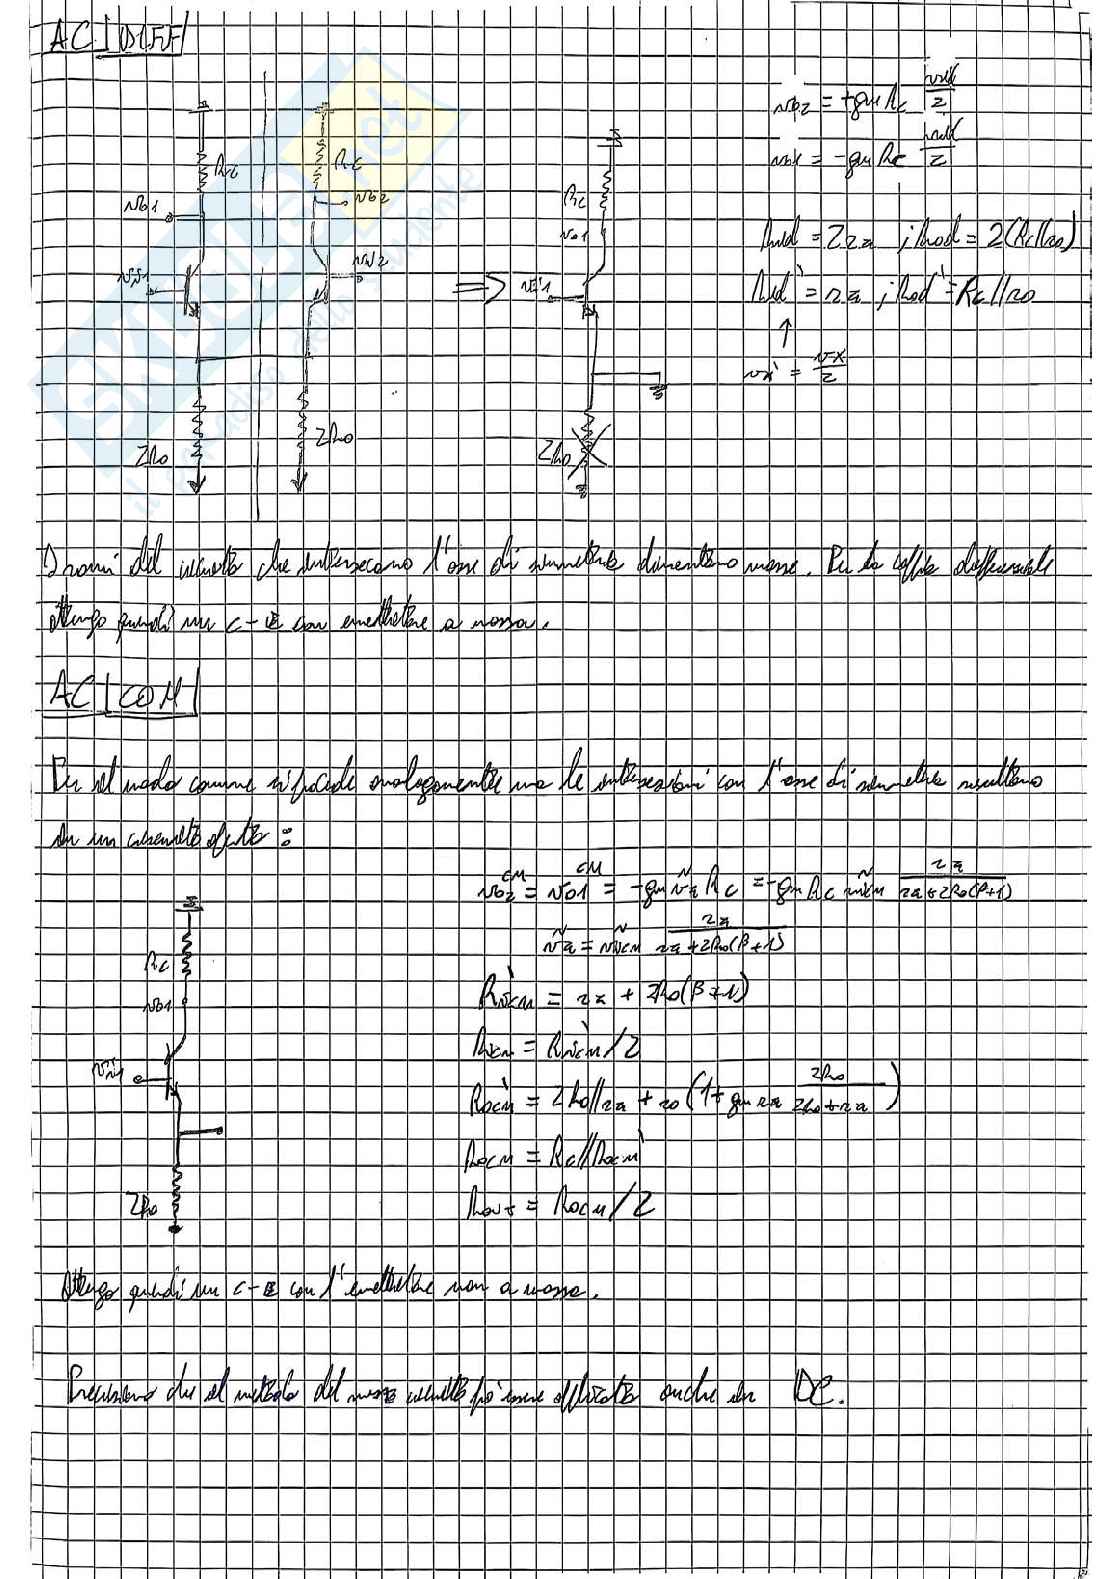 AC|DIFF|
vo2 = +gm Rc vid/2
vo1 = -gm Rc vid/2
Rc
Rc
vo1
vo2
vi1
vi2
Rc
vo1
vi1
Rid = 2rπ ; Rod = 2(Rc//ro)
Rid' = rπ ; Rod' = Rc//ro
↑
vx' = vx/2
2Ro
2Ro
2Ro
SKUOLA.net
il paradiso dello studente
I rami del circuito che intersecano l'asse di simmetria diventano massa. Per la coppia differenziale
ottengo quindi un C-E con emettitore a massa.
AC|COM|
Per il modo comune si procede analogamente ma le intersezioni con l'asse di simmetria risultano
in un circuito aperto :
vo2^CM = vo1^CM = -gm ṽπ Rc = -gm Rc ṽicm rπ/(rπ+2Ro(β+1))
ṽπ = ṽicm rπ/(rπ+2Ro(β+1))
Rc
vo1
vi1
2Ro
Ricm' = rπ + 2Ro(β+1)
Ricm = Ricm'/2
Rocm' = 2Ro//rπ + ro(1+gm rπ 2Ro/(2Ro+rπ))
Rocm = Rc//Rocm'
Rout = Rocm/2
Ottengo quindi un C-E con l'emettitore non a massa.
Precisiamo che il metodo del mezzo circuito può essere applicato anche in DC.